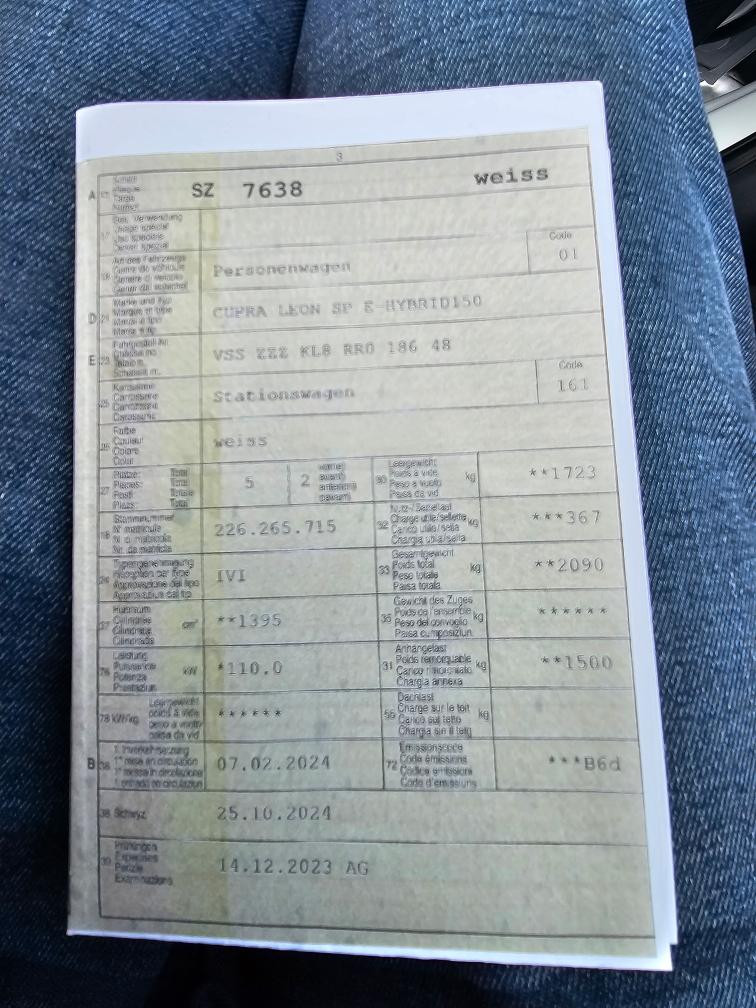 3
A 15 Schild Plaque Targa Numer SZ 7638 weiss
17 Bes. Verwendung Usage spécial Uso speciale
19 Art des Fahrzeugs Genre de véhicule Genere di veicolo Personenwagen Code 01
D 21 Marke und Typ Marque et type Marca e tipo CUPRA LEON SP E-HYBRID150
E 23 Fahrgestell-Nr. Châssis no Telaio n. VSS ZZZ KL8 RR0 186 48
25 Karosserie Carrosserie Carrozzeria Stationswagen Code 161
26 Farbe Couleur Colore Colur weiss
27 Plätze: Total Places: Total Posti: Totale Plazs: Total 5 2 vorne: avant: anteriori: davant: 30 Leergewicht Poids à vide Peso a vuoto Paisa da vid kg **1723
18 Stammnummer N° matricule N. di matricola Nr. da matricla 226.265.715 32 Nutz-/Sattellast Charge utile/sellette Carico utile/sella Chargia utila/sella kg ***367
24 Typengenehmigung Réception par type Approvazione del tipo Approvaziun dal tip IVI 33 Gesamtgewicht Poids total Peso totale Paisa totala kg **2090
37 Hubraum Cylindrée Cilindrata cm³ **1395 35 Gewicht des Zuges Poids de l'ensemble Peso del convoglio Paisa cumposiziun kg ******
76 Leistung Puissance Potenza Prestaziun kW *110.0 31 Anhängelast Poids remorquable Carico rimorchiato Chargia annexa kg **1500
78 kW/kg Leergewicht poids à vide peso a vuoto paisa da vid ****** 55 Dachlast Charge sur le toit Carico sul tetto Chargia sin il tetg kg
B 36 1. Inverkehrsetzung 1re mise en circulation 1a messa in circolazione 07.02.2024 72 Emissionscode Code émissions Codice emissioni Code d'emissiuns ***B6d
38 Schwyz 25.10.2024
39 Prüfungen Expertises Perizie Examinaziuns 14.12.2023 AG